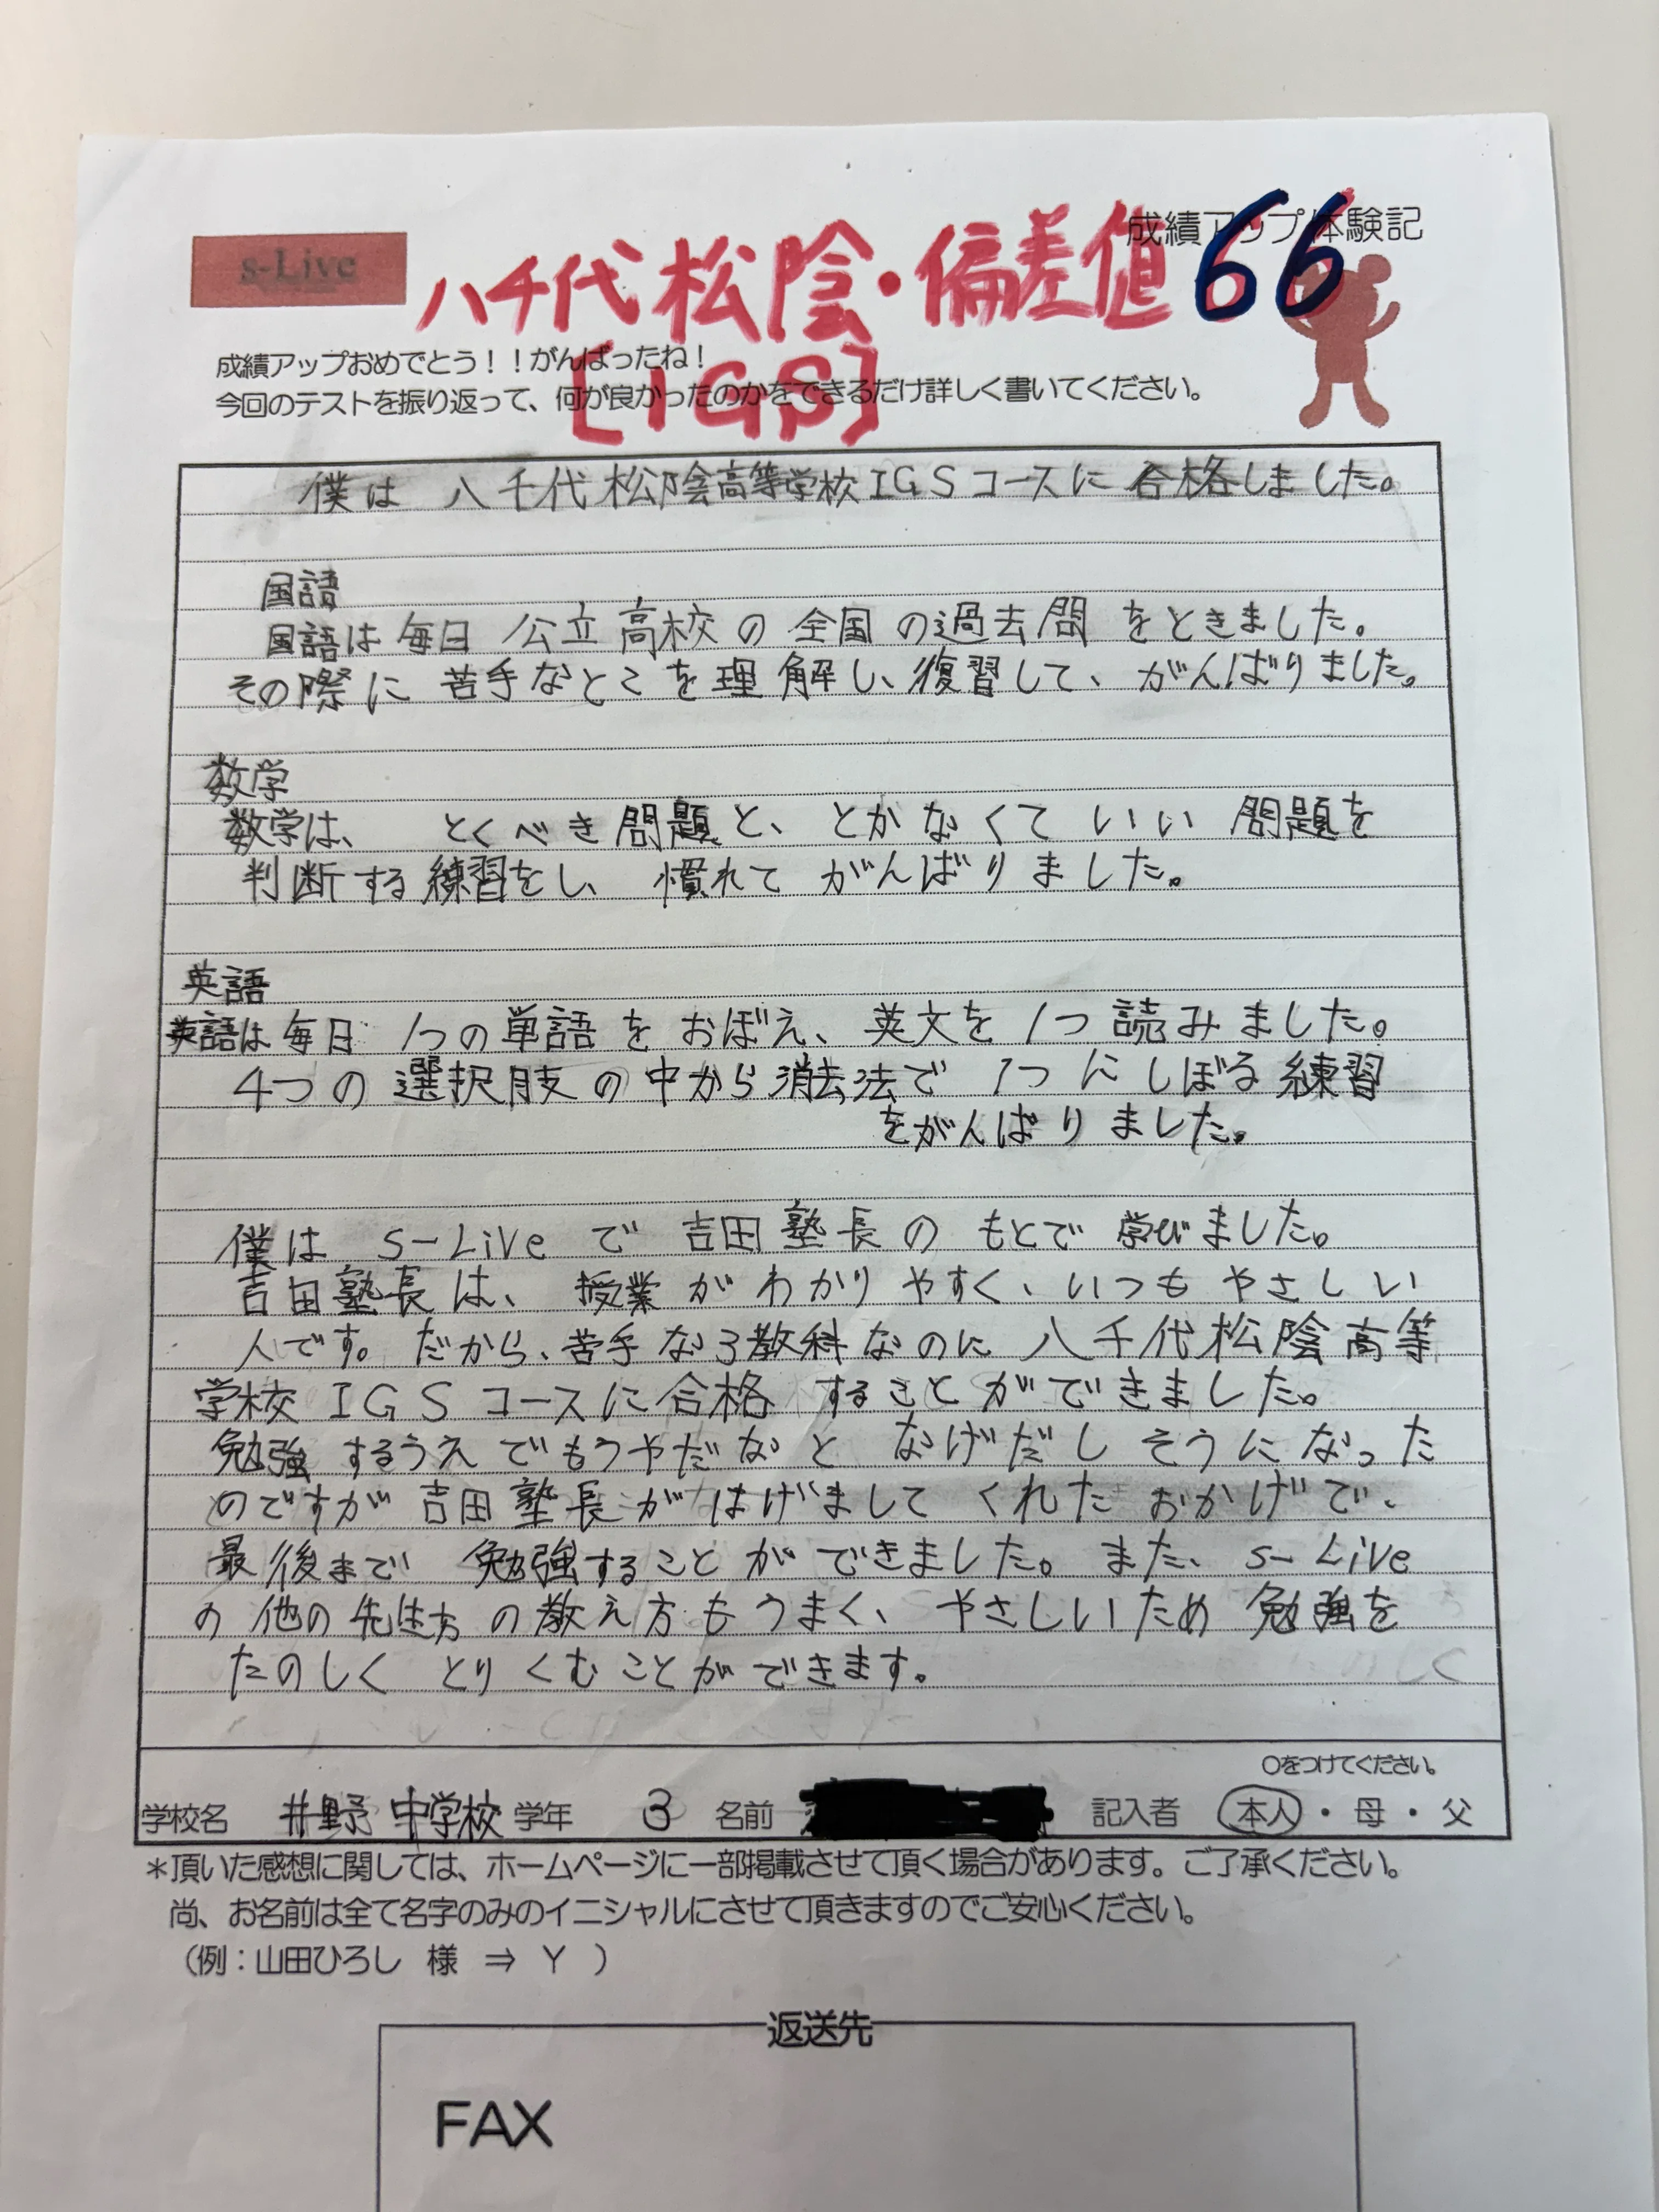 s-Live
成績アップ体験記
八千代松陰・偏差値66
[IGS]
成績アップおめでとう！！がんばったね！
今回のテストを振り返って、何が良かったのかをできるだけ詳しく書いてください。
僕は八千代松陰高等学校IGSコースに合格しました。
国語
国語は毎日公立高校の全国の過去問をときました。
その際に苦手なところを理解し、復習して、がんばりました。
数学
数学は、とくべき問題と、とかなくていい問題を
判断する練習をし、慣れてがんばりました。
英語
英語は毎日1つの単語をおぼえ、英文を1つ読みました。
4つの選択肢の中から消去法で1つにしぼる練習
をがんばりました。
僕はs-Liveで吉田塾長のもとで学びました。
吉田塾長は、授業がわかりやすく、いつもやさしい
人です。だから、苦手な3教科なのに八千代松陰高等
学校IGSコースに合格することができました。
勉強するうえでもうやだなとなげだしそうになった
のですが吉田塾長がはげましてくれたおかげで、
最後まで勉強することができました。また、s-Live
の他の先生方の教え方もうまく、やさしいため勉強を
たのしくとりくむことができます。
○をつけてください。
学校名 井野中学校 学年 3 名前 記入者 本人・母・父
＊頂いた感想に関しては、ホームページに一部掲載させて頂く場合があります。ご了承ください。
尚、お名前は全て名字のみのイニシャルにさせて頂きますのでご安心ください。
（例：山田ひろし 様 ⇒ Y ）
返送先
FAX